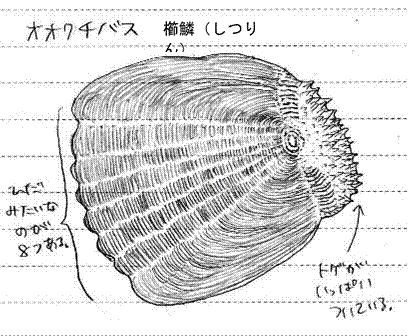 オオクチバス 櫛鱗(しつり
ん)
ひだ
みたいな
のが
8つある。
トゲが
いっぱい
ついている。